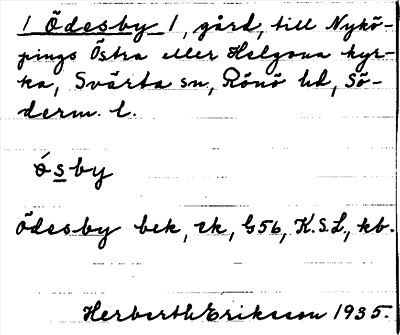 1 Ödesby 1, gård, till Nykö-
pings Östra eller Helgona kyr-
ka, Svärta sn, Rönö hd, Sö-
derm. l.
ósby
Ödesby bek, rk, G56, K.S.L, kb.
Herbarth Eriksson 1935.